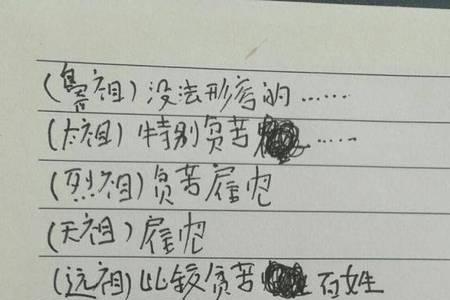 (鼻祖)没法形容的……
(太祖)特别贫苦……
(烈祖)贫苦雇农
(天祖)雇农
(远祖)比较贫苦百姓